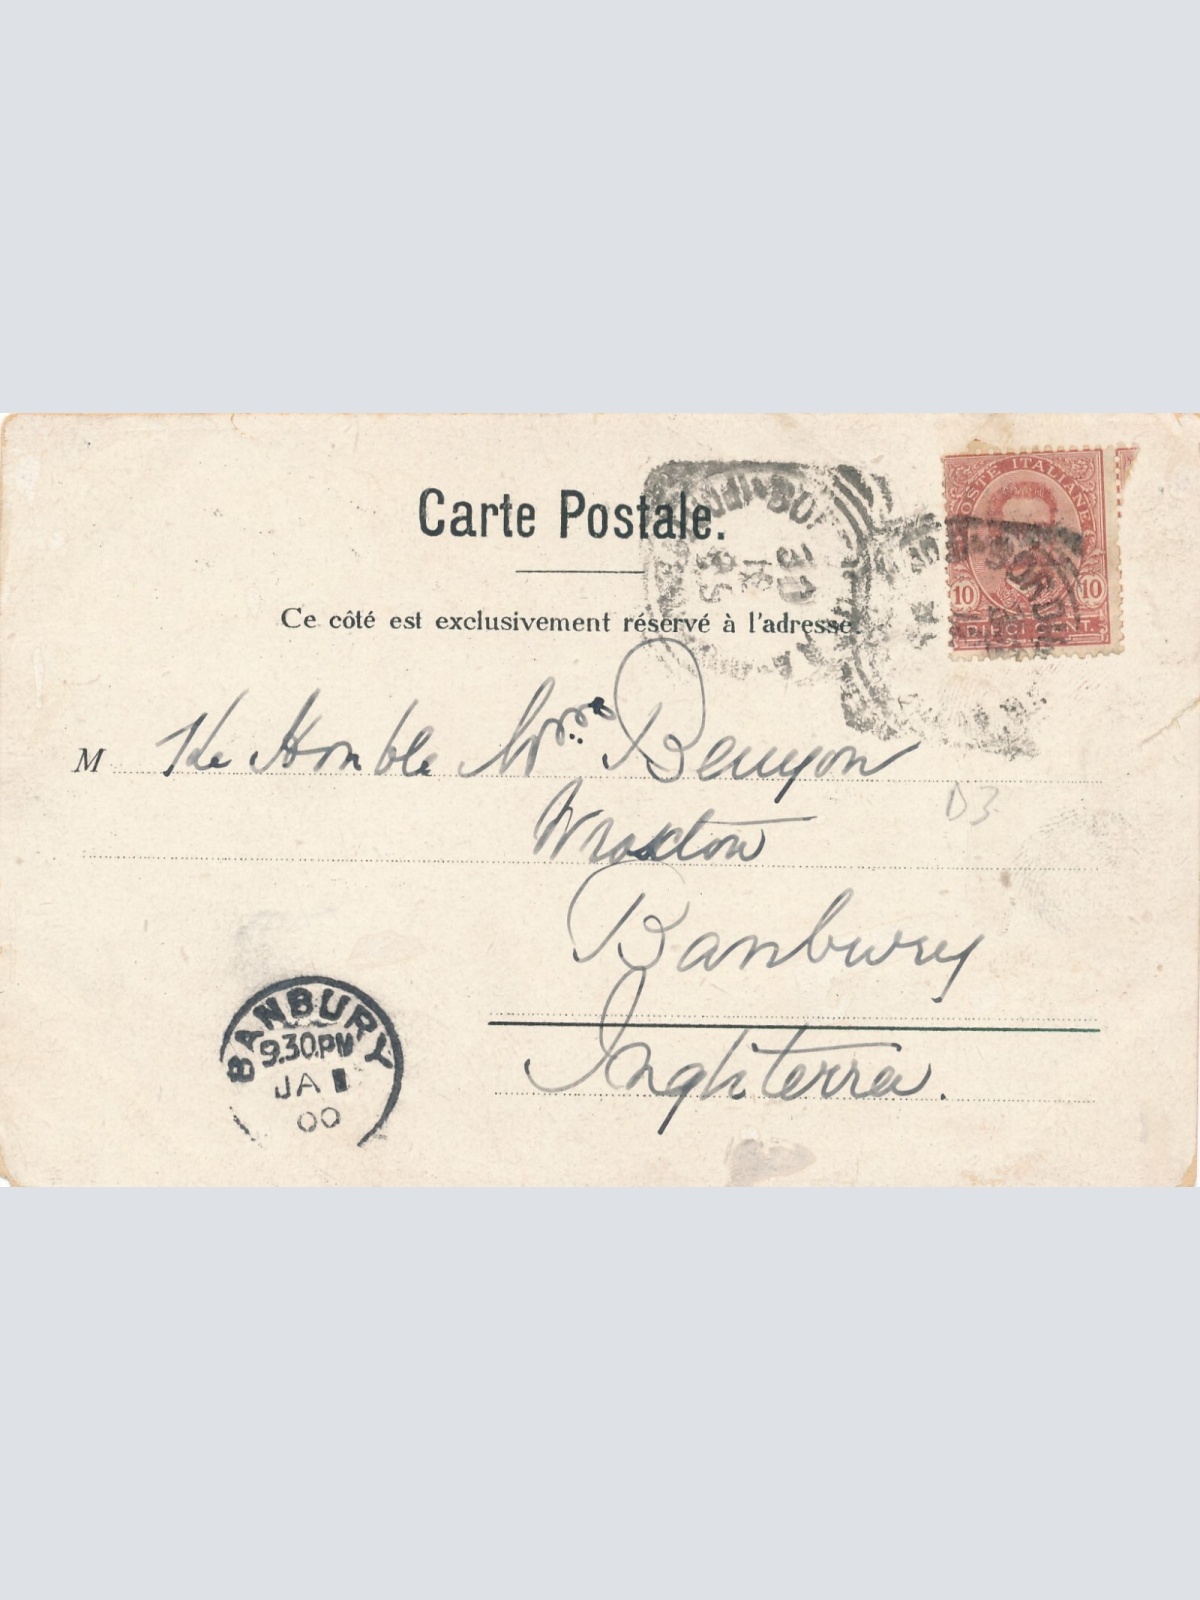 Carte Postale.
POSTE ITALIANE
10 10
DIECI CENT.
Ce côté est exclusivement réservé à l'adresse.
M The Honble Mrs Benyon
Wroxton
D3
Banbury
Inghiterra.
BANBURY
9.30PM
JA 1
00